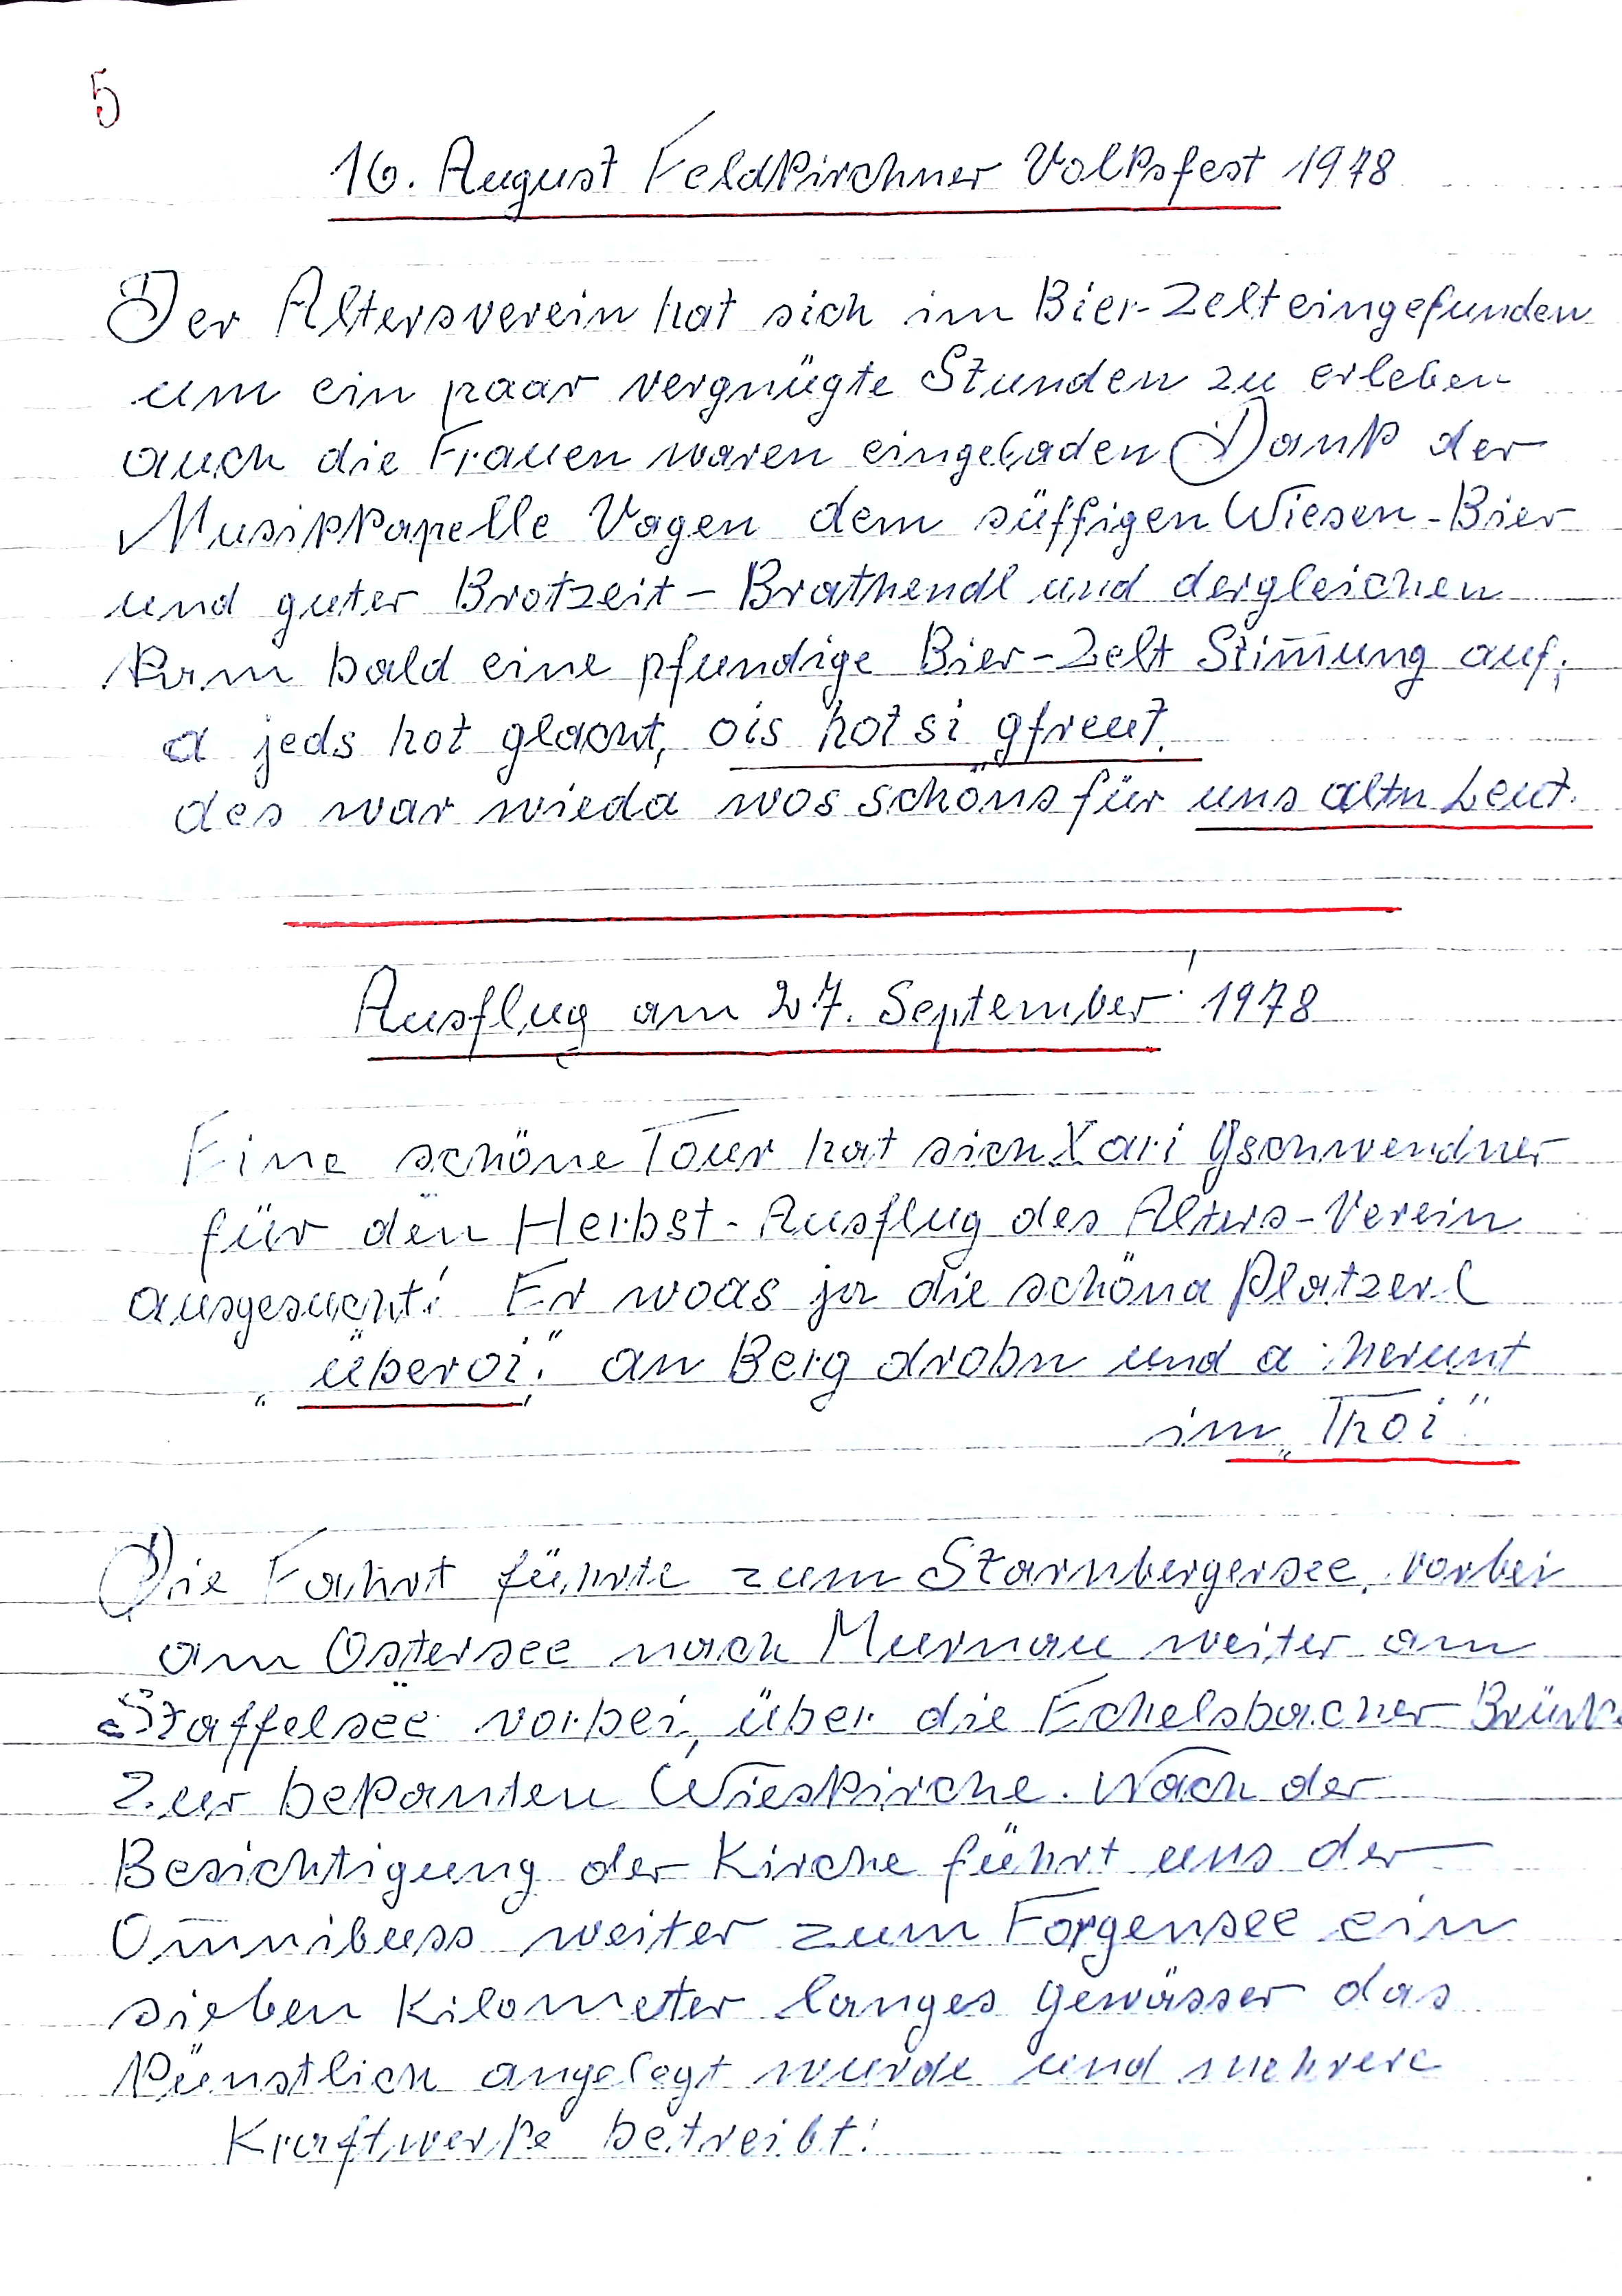 5
16. August Feldkirchner Volksfest 1978
Der Altersverein hat sich im Bier-Zelt eingefunden
um ein paar vergnügte Stunden zu erleben
auch die Frauen waren eingeladen Dank der
Musikkapelle Vagen dem süffigen Wiesen-Bier
und guter Brotzeit - Brathendl und dergleichen
kam bald eine pfundige Bier-Zelt Stim̄ung auf,
a jeds hot glacht, ois hot si gfreut.
des war wieda wos schöns für uns altn Leut.
Ausflug am 27. September 1978
Eine schöne Tour hat sich Xari Gschwendner
für den Herbst-Ausflug des Alters-Verein
ausgesucht! Er woas ja die schöna Platzerl
"überoi" an Berg drobn und a herunt
im "Thoi"
Die Fahrt führte zum Starnbergersee, vorbei
am Ostersee nach Murnau weiter am
Staffelsee vorbei, über die Echelsbacher Brück
Zur bekanten Wieskirche. Nach der
Besichtigung der Kirche führt uns der
Om̄nibuss weiter zum Forgensee ein
sieben Kilometer langes Gewässer das
künstlich angelegt wurde und mehrere
Kraftwerke betreibt!